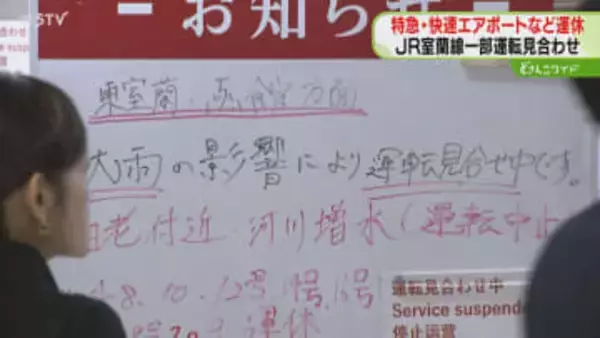 STV
お知らせ
特急・快速エアポートなど運休
JR室蘭線一部運転見合わせ
どさんこワイド
見合わせ
ce suspen
东室蘭・苫小牧方面
大雨の影響により運転見合せ中です。
白老付近 河川増水(運転中止
8.10.12号
運休
運転見合わせ中
Service suspende
停止运营